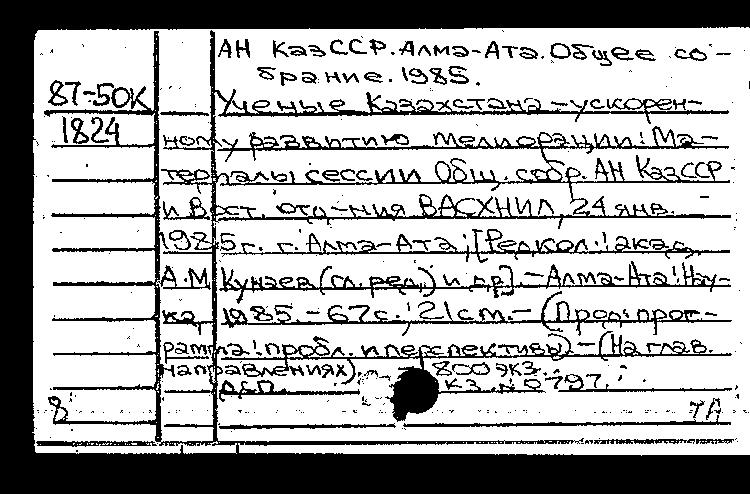 АН КазССР. Алма-Ата. Общее со-
брание. 1985.
87-50К
Ученые Казахстана – ускорен-
1824
ному развитию мелиорации: Ма-
териалы сессии Общ. собр. АН КазССР
и Вост. отд-ния ВАСХНИЛ, 24 янв.
1985 г. г. Алма-Ата; [Редкол.: акад.
А.М. Кунаев (гл. ред.) и др.]. – Алма-Ата: Нау-
ка, 1985. – 67 с.; 21 см. – (Прод. прог-
рамма: пробл. и перспективы) – (На глав.
направлениях). 800 экз.
КЗ. № 0797.
8